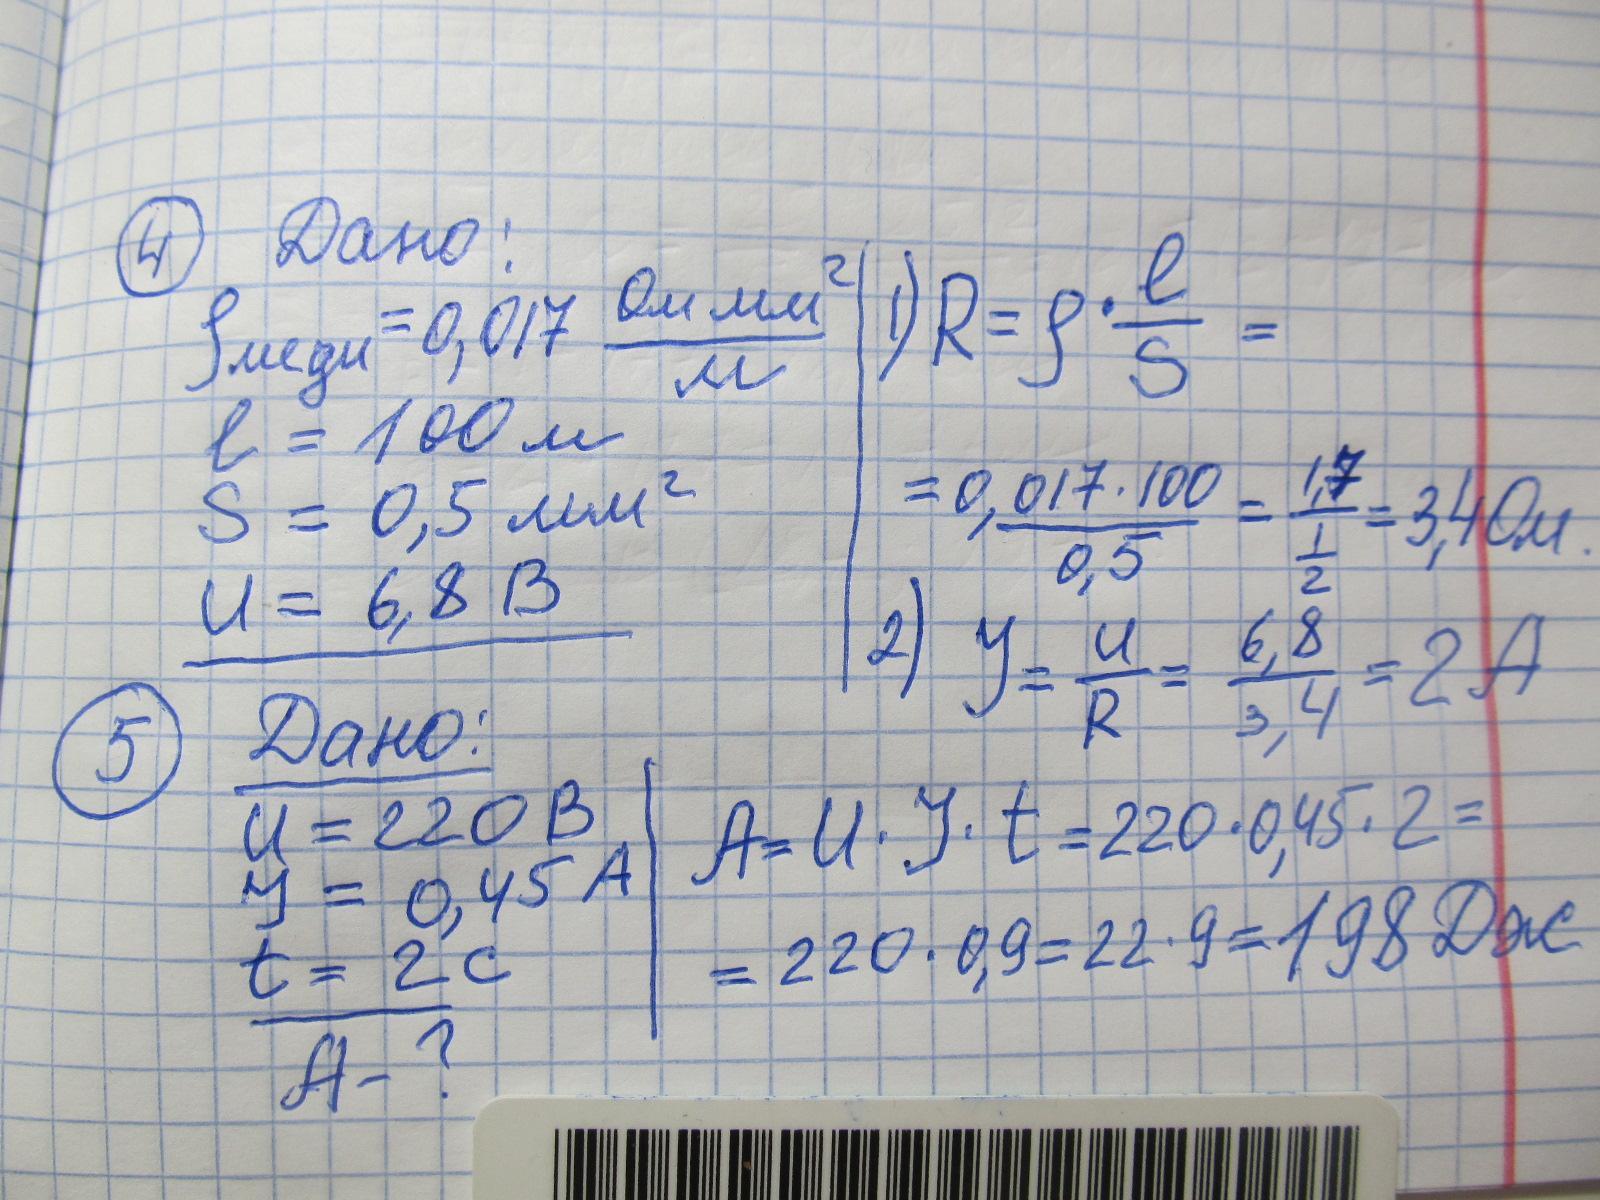 4 Дано:
ρмеди = 0,017 Ом мм²/м
l = 100 м
S = 0,5 мм²
U = 6,8 В
1) R = ρ · l/S =
= 0,017·100/0,5 = 1,7/(1/2) = 3,4 Ом.
2) I = U/R = 6,8/3,4 = 2 А
5 Дано:
U = 220 В
I = 0,45 А
t = 2 с
А - ?
A = U · I · t = 220 · 0,45 · 2 =
= 220 · 0,9 = 22 · 9 = 198 Дж